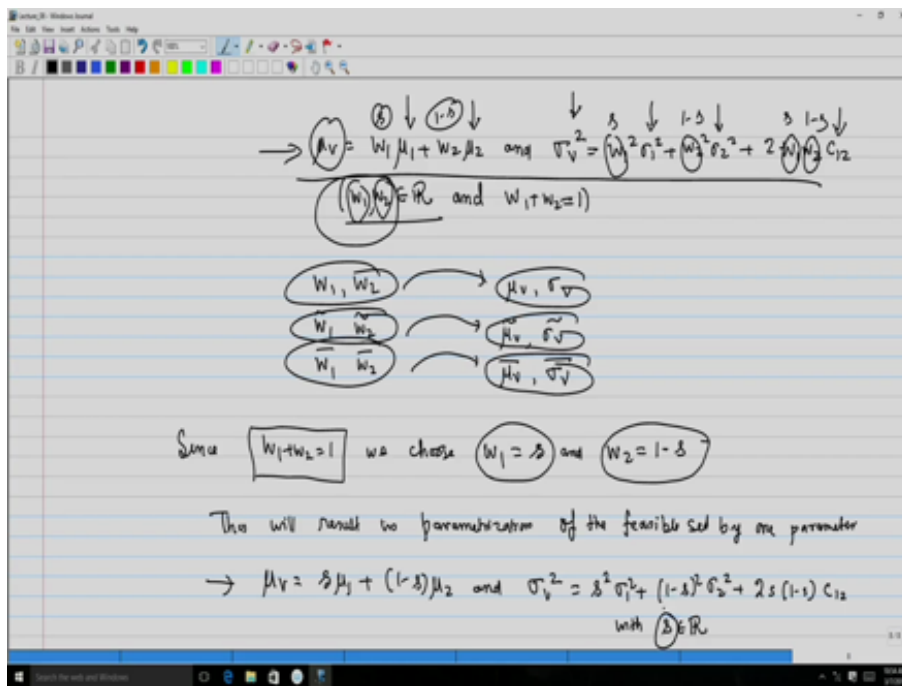 Lecture_09 - Windows Journal
File Edit View Insert Actions Tools Help
B I
s 1-s s 1-s s 1-s
→ μ_V = w_1 μ_1 + w_2 μ_2 and σ_V^2 = w_1^2 σ_1^2 + w_2^2 σ_2^2 + 2 w_1 w_2 C_12
(w_1, w_2 ∈ ℝ and w_1 + w_2 = 1)
w_1, w_2 → μ_V, σ_V
w̃_1 w̃_2 → μ̃_V, σ̃_V
w̄_1 w̄_2 → μ̄_V, σ̄_V
Since w_1 + w_2 = 1 we choose w_1 = s and w_2 = 1 - s
This will result in parametrization of the feasible set by one parameter
→ μ_V = s μ_1 + (1-s) μ_2 and σ_V^2 = s^2 σ_1^2 + (1-s)^2 σ_2^2 + 2s(1-s) C_12
with s ∈ ℝ
Search the web and Windows